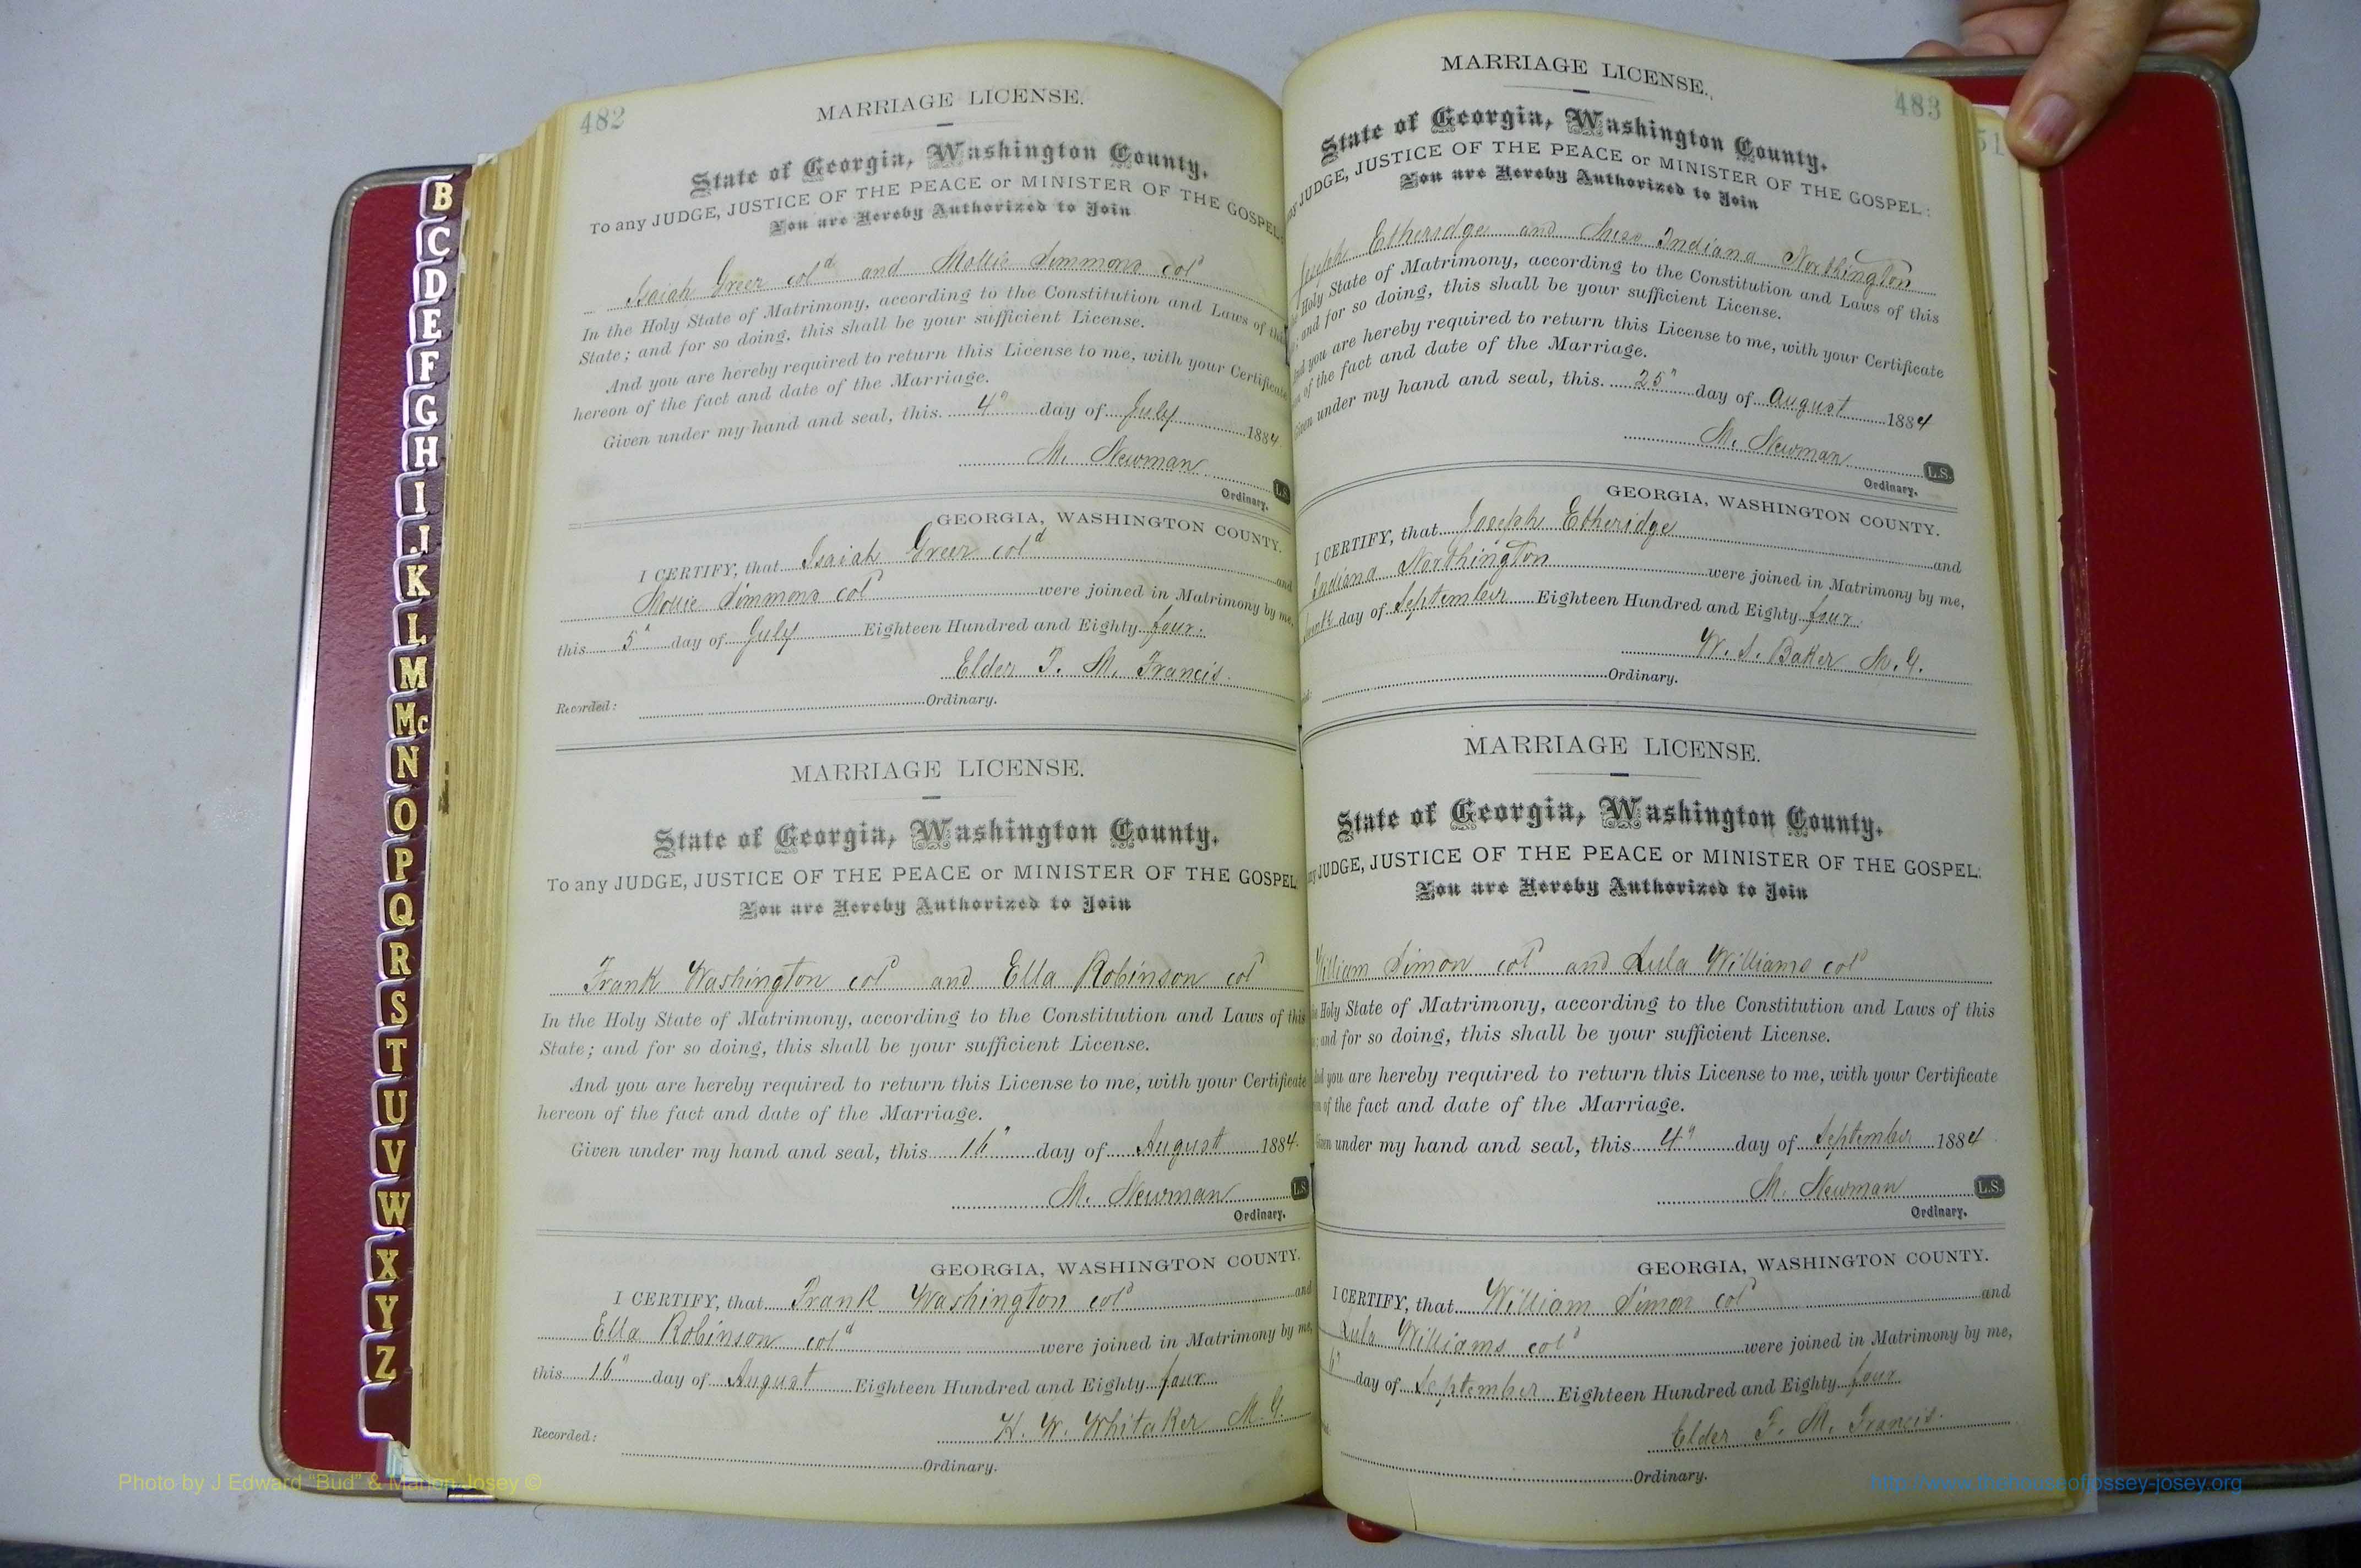 482
MARRIAGE LICENSE.
State of Georgia, Washington County.
To any JUDGE, JUSTICE OF THE PEACE or MINISTER OF THE GOSPEL:
You are Hereby Authorized to Join
Isaiah Greer cold and Mollie Simmons col
In the Holy State of Matrimony, according to the Constitution and Laws of this
State; and for so doing, this shall be your sufficient License.
And you are hereby required to return this License to me, with your Certificate
hereon of the fact and date of the Marriage.
Given under my hand and seal, this 4" day of July 1884
M. Newman L.S.
Ordinary.
GEORGIA, WASHINGTON COUNTY.
I CERTIFY, that Isaiah Greer cold and
Mollie Simmons col were joined in Matrimony by me,
this 5" day of July Eighteen Hundred and Eighty four.
Elder F. M. Francis.
Recorded: Ordinary.
MARRIAGE LICENSE.
State of Georgia, Washington County.
To any JUDGE, JUSTICE OF THE PEACE or MINISTER OF THE GOSPEL
You are Hereby Authorized to Join
Frank Washington col and Ella Robinson col
In the Holy State of Matrimony, according to the Constitution and Laws of this
State; and for so doing, this shall be your sufficient License.
And you are hereby required to return this License to me, with your Certificate
hereon of the fact and date of the Marriage.
Given under my hand and seal, this 16" day of August 1884.
M. Newman L.S.
Ordinary.
GEORGIA, WASHINGTON COUNTY.
I CERTIFY, that Frank Washington col and
Ella Robinson cold were joined in Matrimony by me,
this 16" day of August Eighteen Hundred and Eighty four
H. W. Whitaker M.G.
Recorded: Ordinary.
483
51
MARRIAGE LICENSE.
State of Georgia, Washington County.
JUDGE, JUSTICE OF THE PEACE or MINISTER OF THE GOSPEL:
You are Hereby Authorized to Join
Joseph Etheridge and Miss Indiana Northington
Holy State of Matrimony, according to the Constitution and Laws of this
and for so doing, this shall be your sufficient License.
And you are hereby required to return this License to me, with your Certificate
of the fact and date of the Marriage.
Given under my hand and seal, this 25" day of August 1884
M. Newman L.S.
Ordinary.
GEORGIA, WASHINGTON COUNTY.
I CERTIFY, that Joseph Etheridge and
Indiana Northington were joined in Matrimony by me,
day of September Eighteen Hundred and Eighty four.
W. S. Baker M.G.
Ordinary.
MARRIAGE LICENSE.
State of Georgia, Washington County.
JUDGE, JUSTICE OF THE PEACE or MINISTER OF THE GOSPEL:
You are Hereby Authorized to Join
William Simon col and Lula Williams col
Holy State of Matrimony, according to the Constitution and Laws of this
and for so doing, this shall be your sufficient License.
And you are hereby required to return this License to me, with your Certificate
of the fact and date of the Marriage.
Given under my hand and seal, this 4" day of September 1884
M. Newman L.S.
Ordinary.
GEORGIA, WASHINGTON COUNTY.
I CERTIFY, that William Simon col and
Lula Williams col were joined in Matrimony by me,
6" day of September Eighteen Hundred and Eighty four
Elder F. M. Francis.
Ordinary.
B
C
D
E
F
G
H
I
J
K
L
M
Mc
N
O
P
Q
R
S
T
U
V
W
X
Y
Z
Photo by J Edward "Bud" & Marion Josey ©
http://www.thehouseofjossey-josey.org